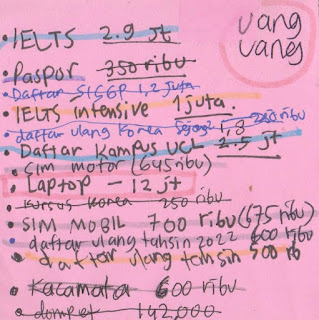 uang
uang
• IELTS 2.9 jt
• Paspor 350 ribu
• Daftar SIGGP 1,2 juta
• IELTS intensive 1 juta.
• daftar ulang Korea Sejong2 1,8 250 ribu
• Daftar Kampus UCL 2.5 jt
• SIM motor (645 ribu)
• Laptop - 12 jt
• Kursus Korea 250 ribu
• SIM MOBIL 700 ribu (675 ribu)
• daftar ulang tahsin 2022 600 ribu
• daftar ulang tahsin 500 rb
• Kacamata 600 ribu
• dompet 142.000